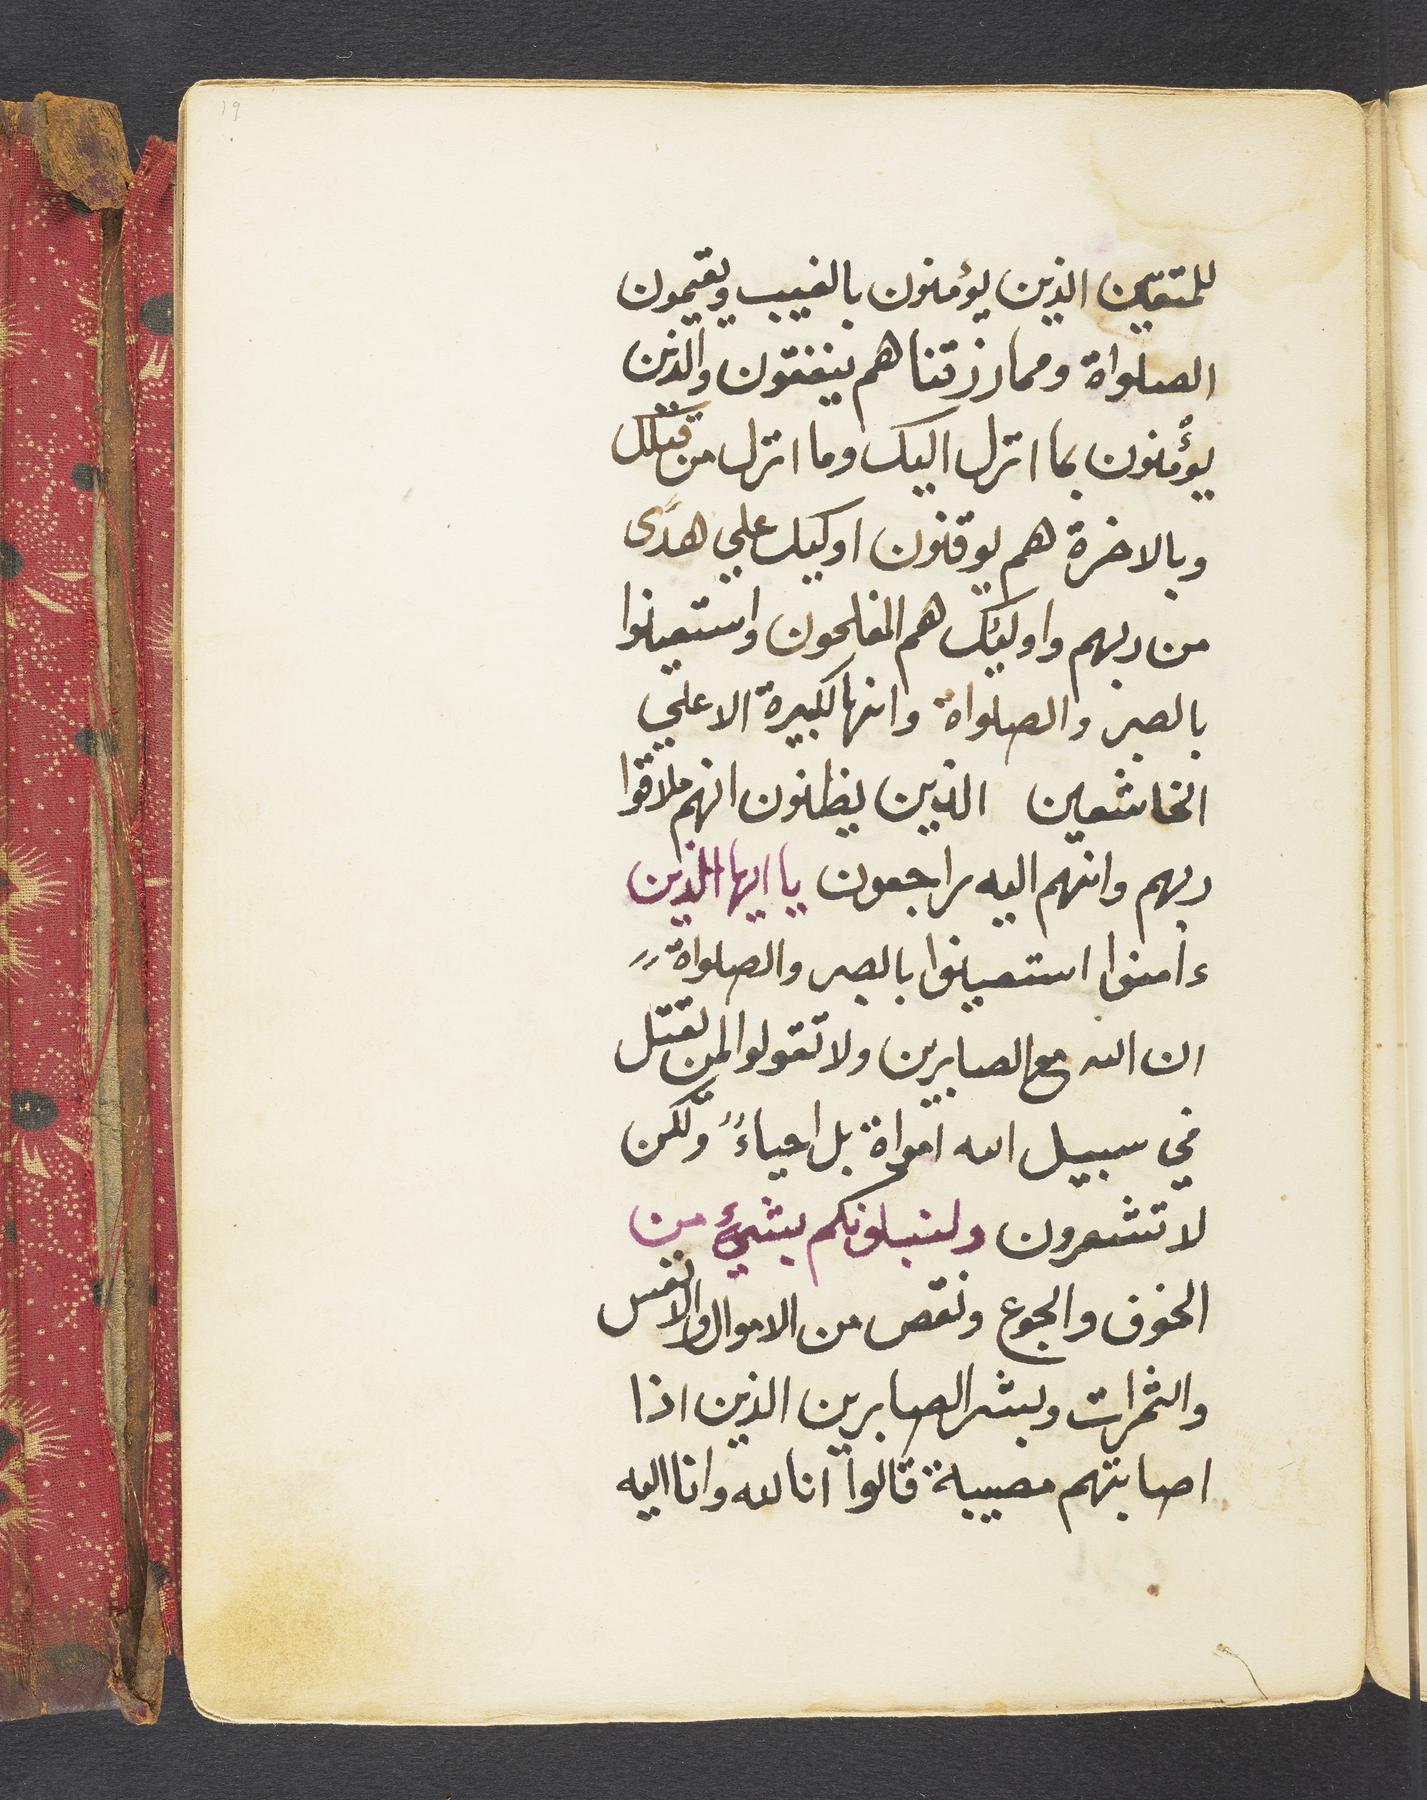 ١٩
للمتقين الذين يؤمنون بالغيب ويقيمون
الصلواة ومما رزقناهم ينفقون والذين
يؤمنون بما انزل اليك وما انزل من قبلك
وبالاخرة هم يوقنون اوليك علي هدًى
من ربهم واوليك هم المفلحون واستعينوا
بالصبر والصلواة وانها لكبيرة الا علي
الخاشعين الذين يظنون انهم ملاقوا
ربهم وانهم اليه راجعون يا ايها الذين
ءامنوا استعينوا بالصبر والصلواة
ان الله مع الصابرين ولا تقولوا لمن يقتل
في سبيل الله امواة بل احياءٌ ولكن
لا تشعرون ولنبلونكم بشيئ من
الخوف والجوع ونقص من الاموال والانفس
والثمرات وبشر الصابرين الذين اذا
اصابتهم مصيبة قالوا انا لله وانا اليه